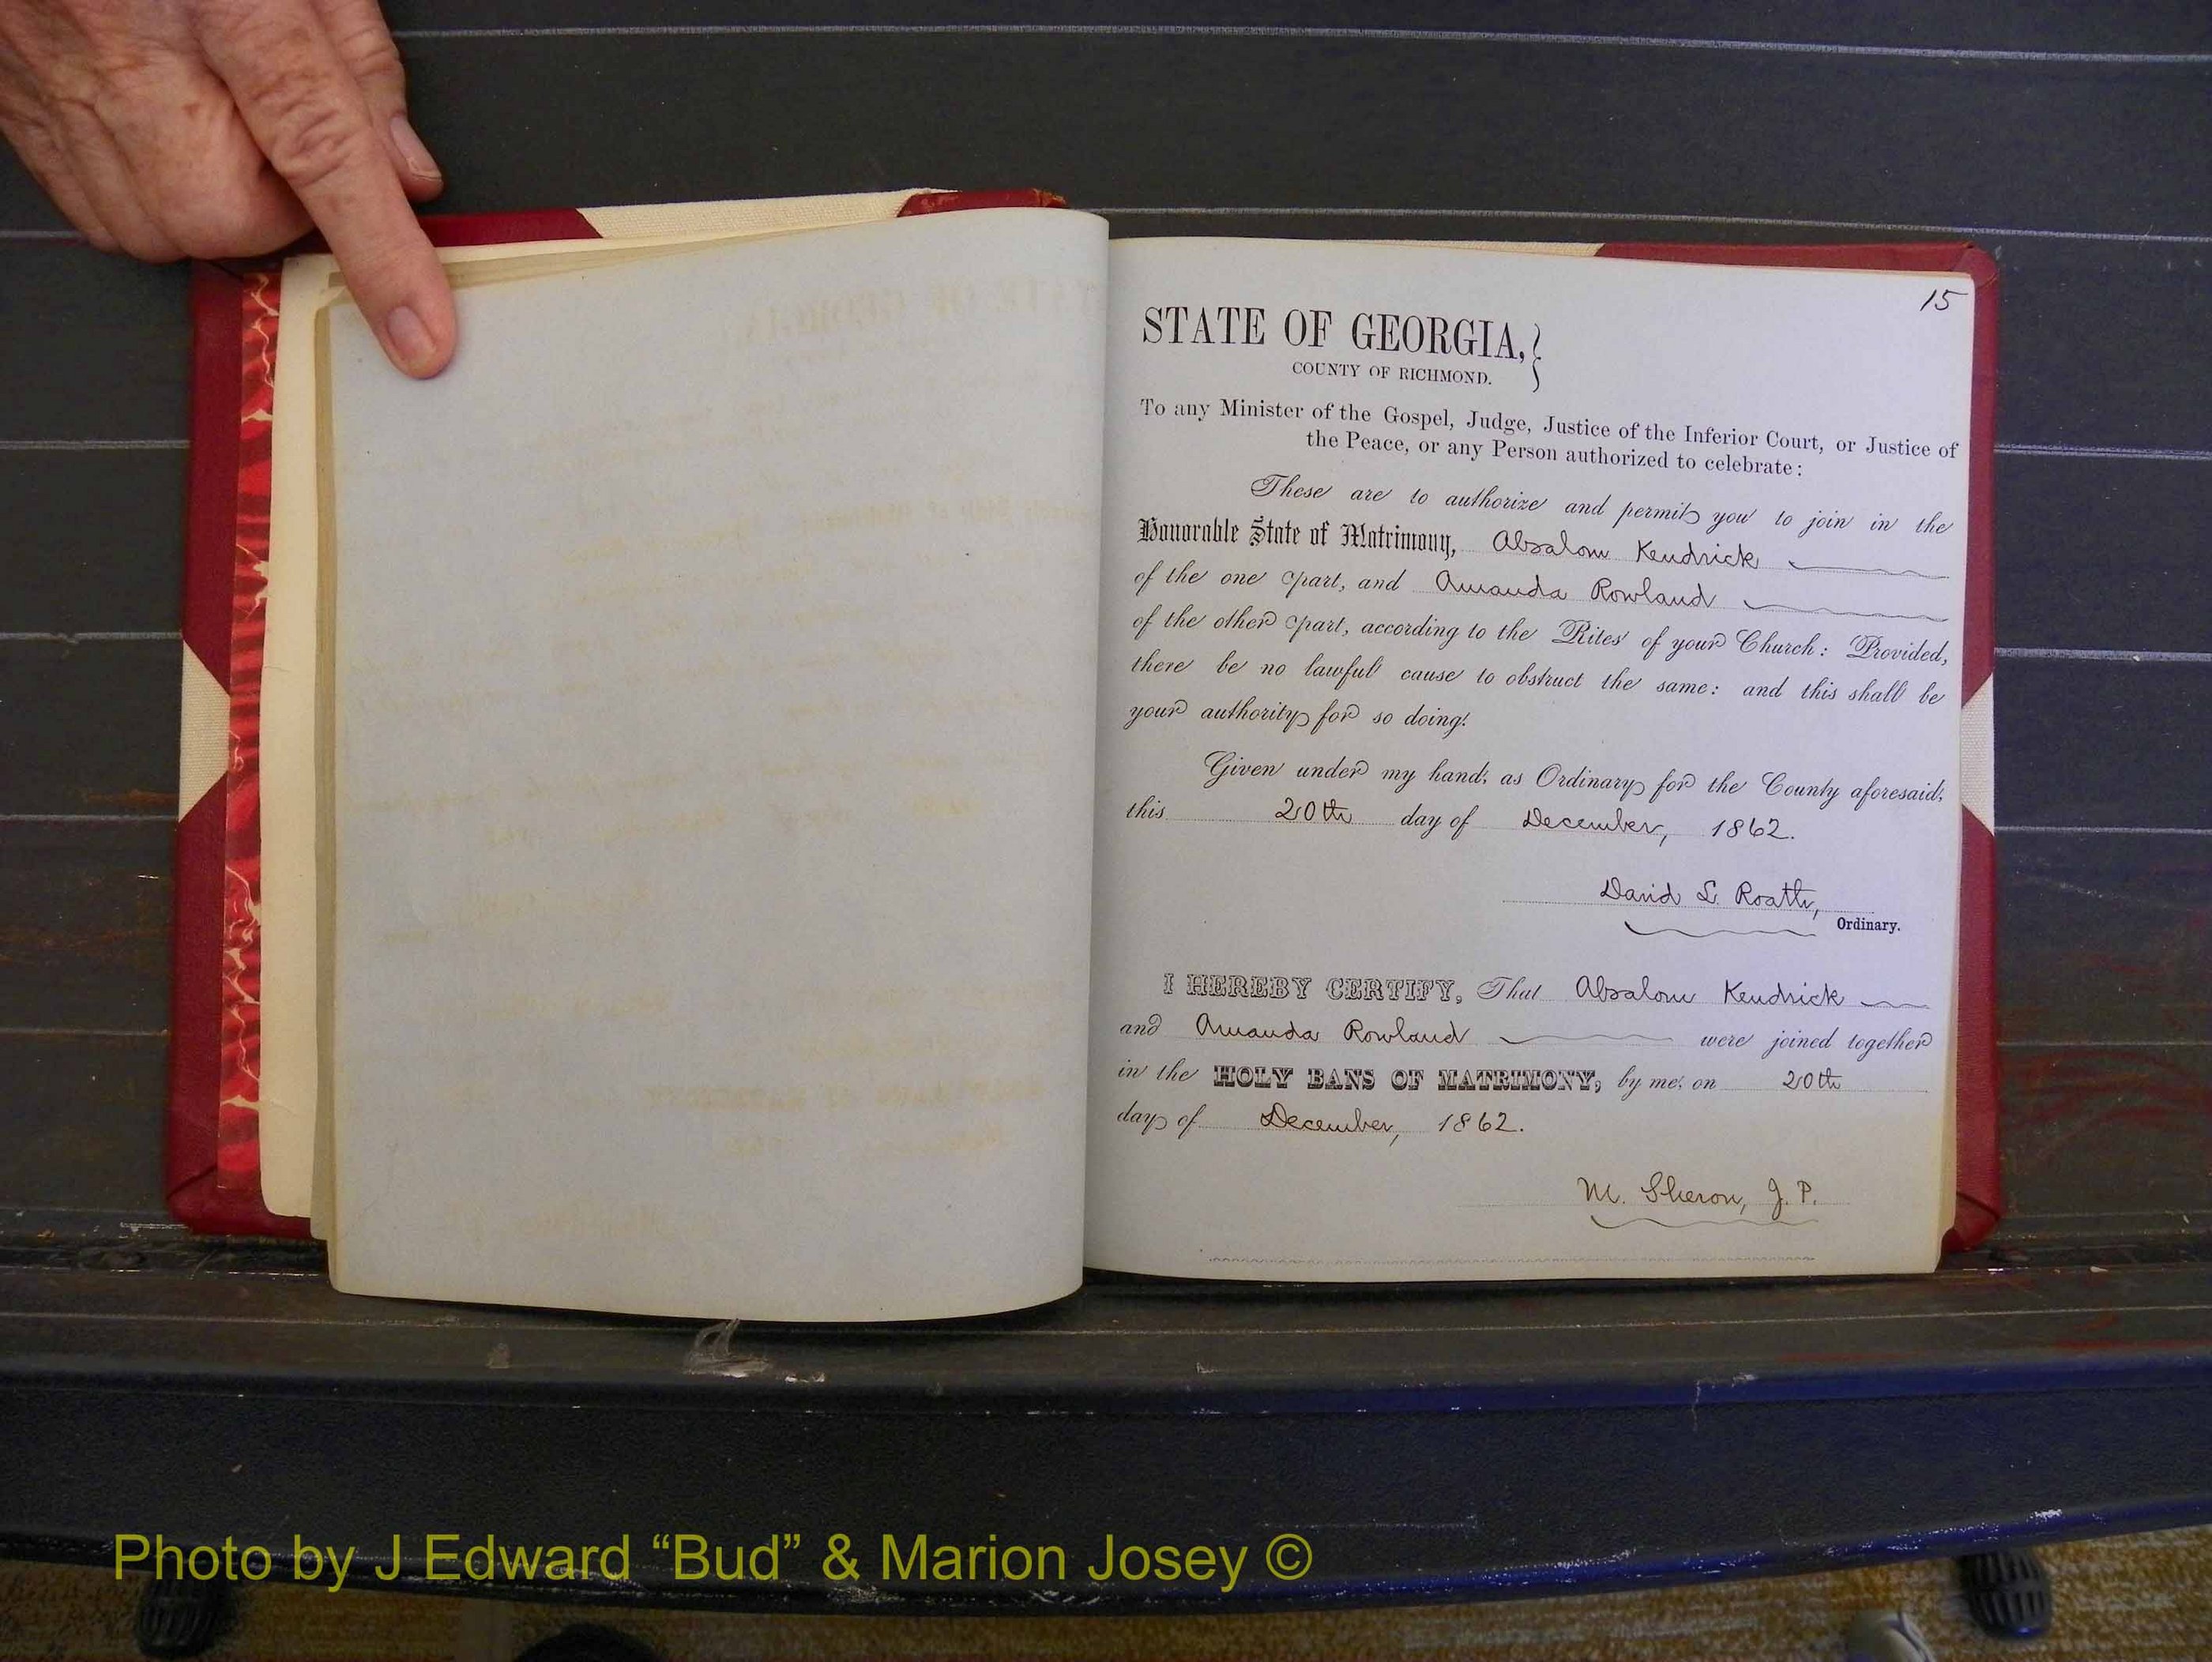 15
STATE OF GEORGIA,
COUNTY OF RICHMOND.
To any Minister of the Gospel, Judge, Justice of the Inferior Court, or Justice of
the Peace, or any Person authorized to celebrate:
These are to authorize and permit you to join in the
Honorable State of Matrimony, Absalom Kendrick
of the one part, and Amanda Rowland
of the other part, according to the Rites of your Church: Provided,
there be no lawful cause to obstruct the same: and this shall be
your authority for so doing.
Given under my hand, as Ordinary for the County aforesaid,
this 20th day of December, 1862.
David L. Roath,
Ordinary.
I HEREBY CERTIFY, That Absalom Kendrick
and Amanda Rowland were joined together
in the HOLY BANS OF MATRIMONY, by me, on 20th
day of December, 1862.
M. Sheron, J. P.
Photo by J Edward “Bud” & Marion Josey ©